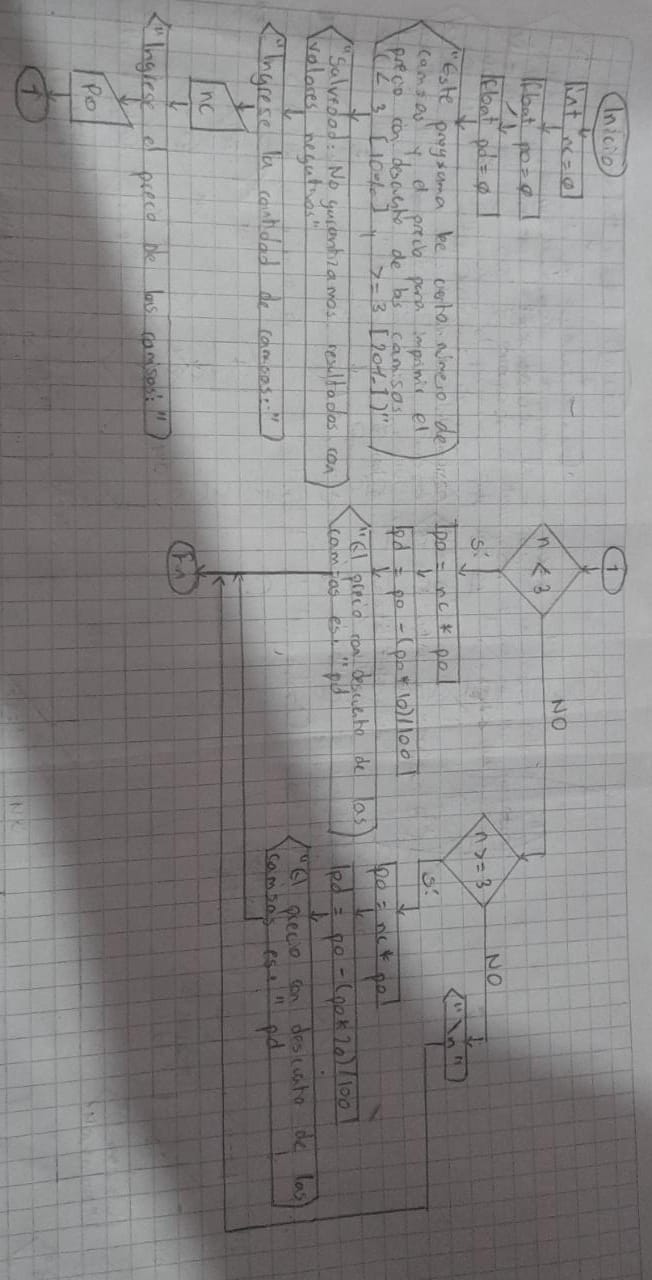 Inicio
int nc=0
float po=0
float pd=0
"Este programa lee cierto número de
camisas y el precio para imprimir el
precio con descuento de las camisas
(< 3 [10%] y >=3 [20%])"
"Salvedad: No garantizamos resultados con
valores negativos"
"Ingrese la cantidad de camisas:"
nc
"Ingrese el precio de las camisas:"
po
1
1
n < 3
NO
si
po = nc * po
pd = po - (po * 10)/100
"El precio con descuento de las
camisas es: " pd
n >= 3
NO
"\n"
si
po = nc * po
pd = po - (po * 20)/100
"El precio con descuento de las
camisas es: " pd
Fin